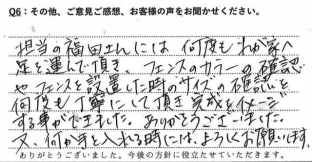 Q6：その他、ご意見ご感想、お客様の声をお聞かせください。
担当の福田さんには 何度もわが家へ
足を運んで頂き、フェンスのカラーの確認
やフェンスを設置した時のサイズの確認を
何度も丁寧にして頂き 完成をイメージ
する事ができました。ありがとうございました。
又、何か手を入れる時には、よろしくお願いします。
ありがとうございました。今後の方針に役立たせていただきます。